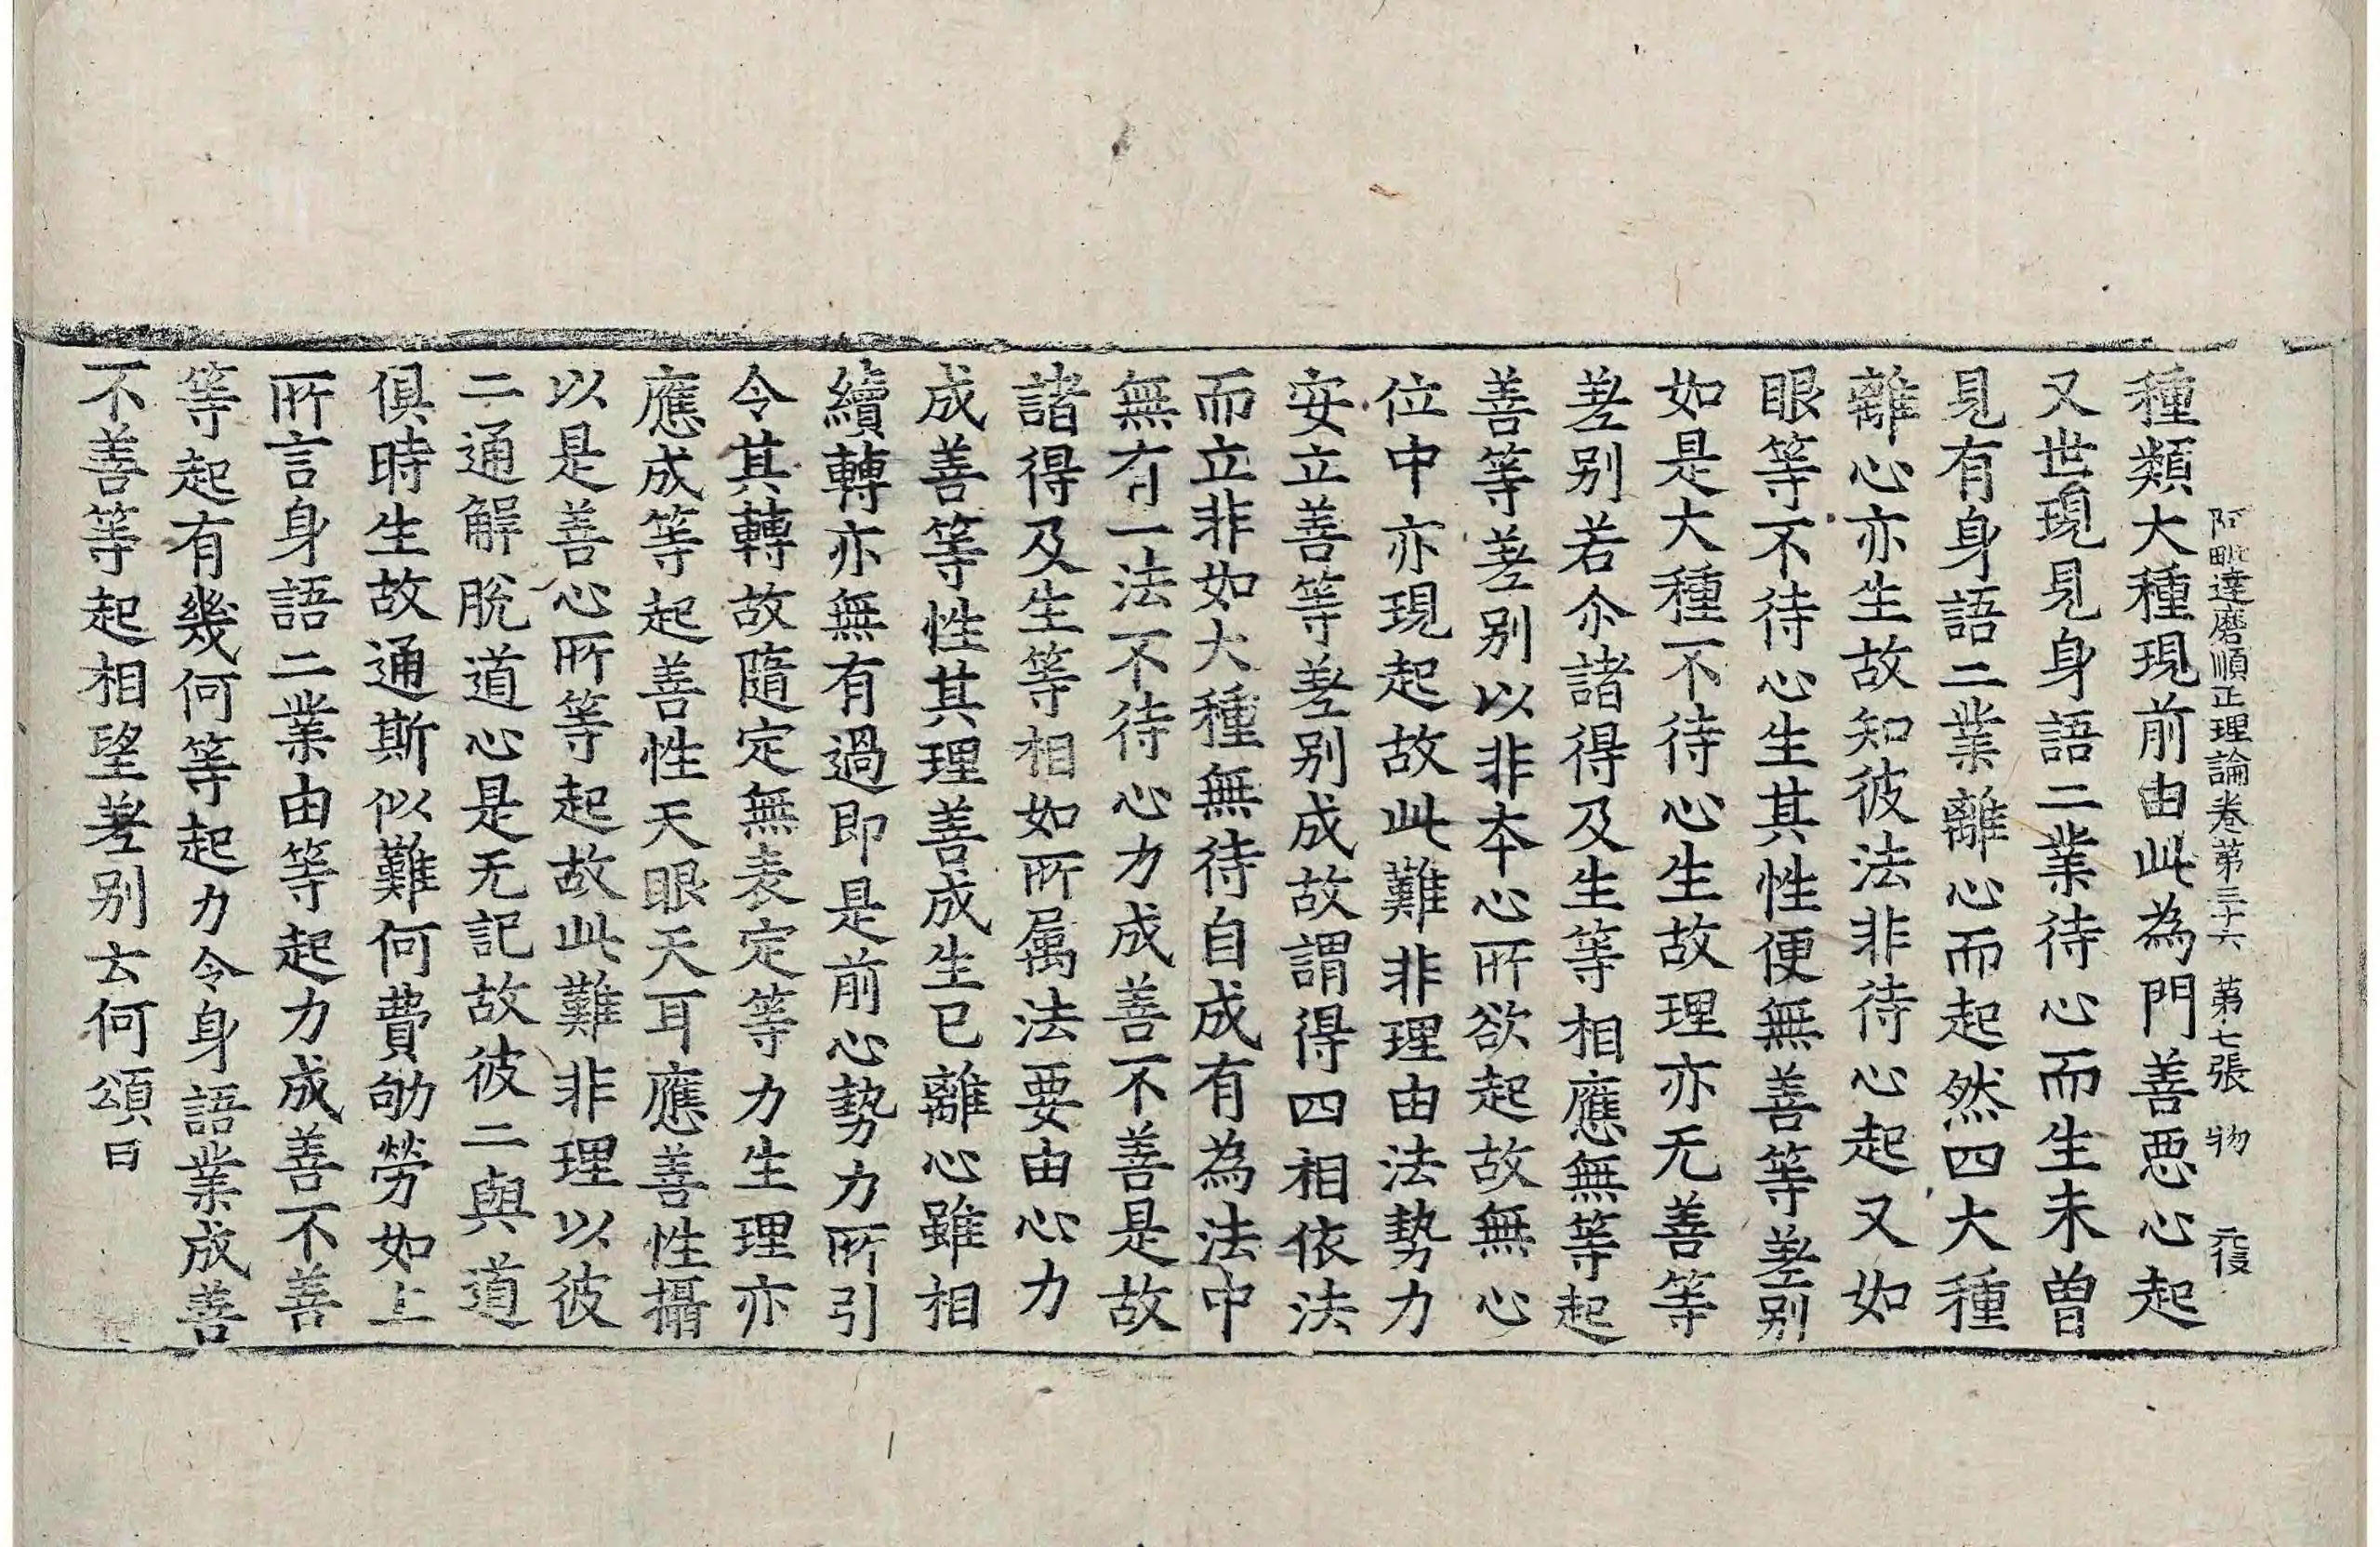 阿毗達磨順正理論卷第三十六 第七張 物 元復
種類大種現前由此為門善惡心起
又世現見身語二業待心而生未曾
見有身語二業離心而起然四大種
離心亦生故知彼法非待心起又如
眼等不待心生其性便無善等差别
如是大種不待心生故理亦无善等
差别若尒諸得及生等相應無等起
善等差别以非本心所欲起故無心
位中亦現起故此難非理由法勢力
安立善等差别成故謂得四相依法
而立非如大種無待自成有為法中
無有一法不待心力成善不善是故
諸得及生等相如所属法要由心力
成善等性其理善成生已離心雖相
續轉亦無有過即是前心勢力所引
令其轉故隨定無表定等力生理亦
應成等起善性天眼天耳應善性攝
以是善心所等起故此難非理以彼
二通解脫道心是无記故彼二與道
俱時生故通斯似難何費劬勞如上
所言身語二業由等起力成善不善
等起有幾何等起力令身語業成善
不善等起相望差别云何頌曰